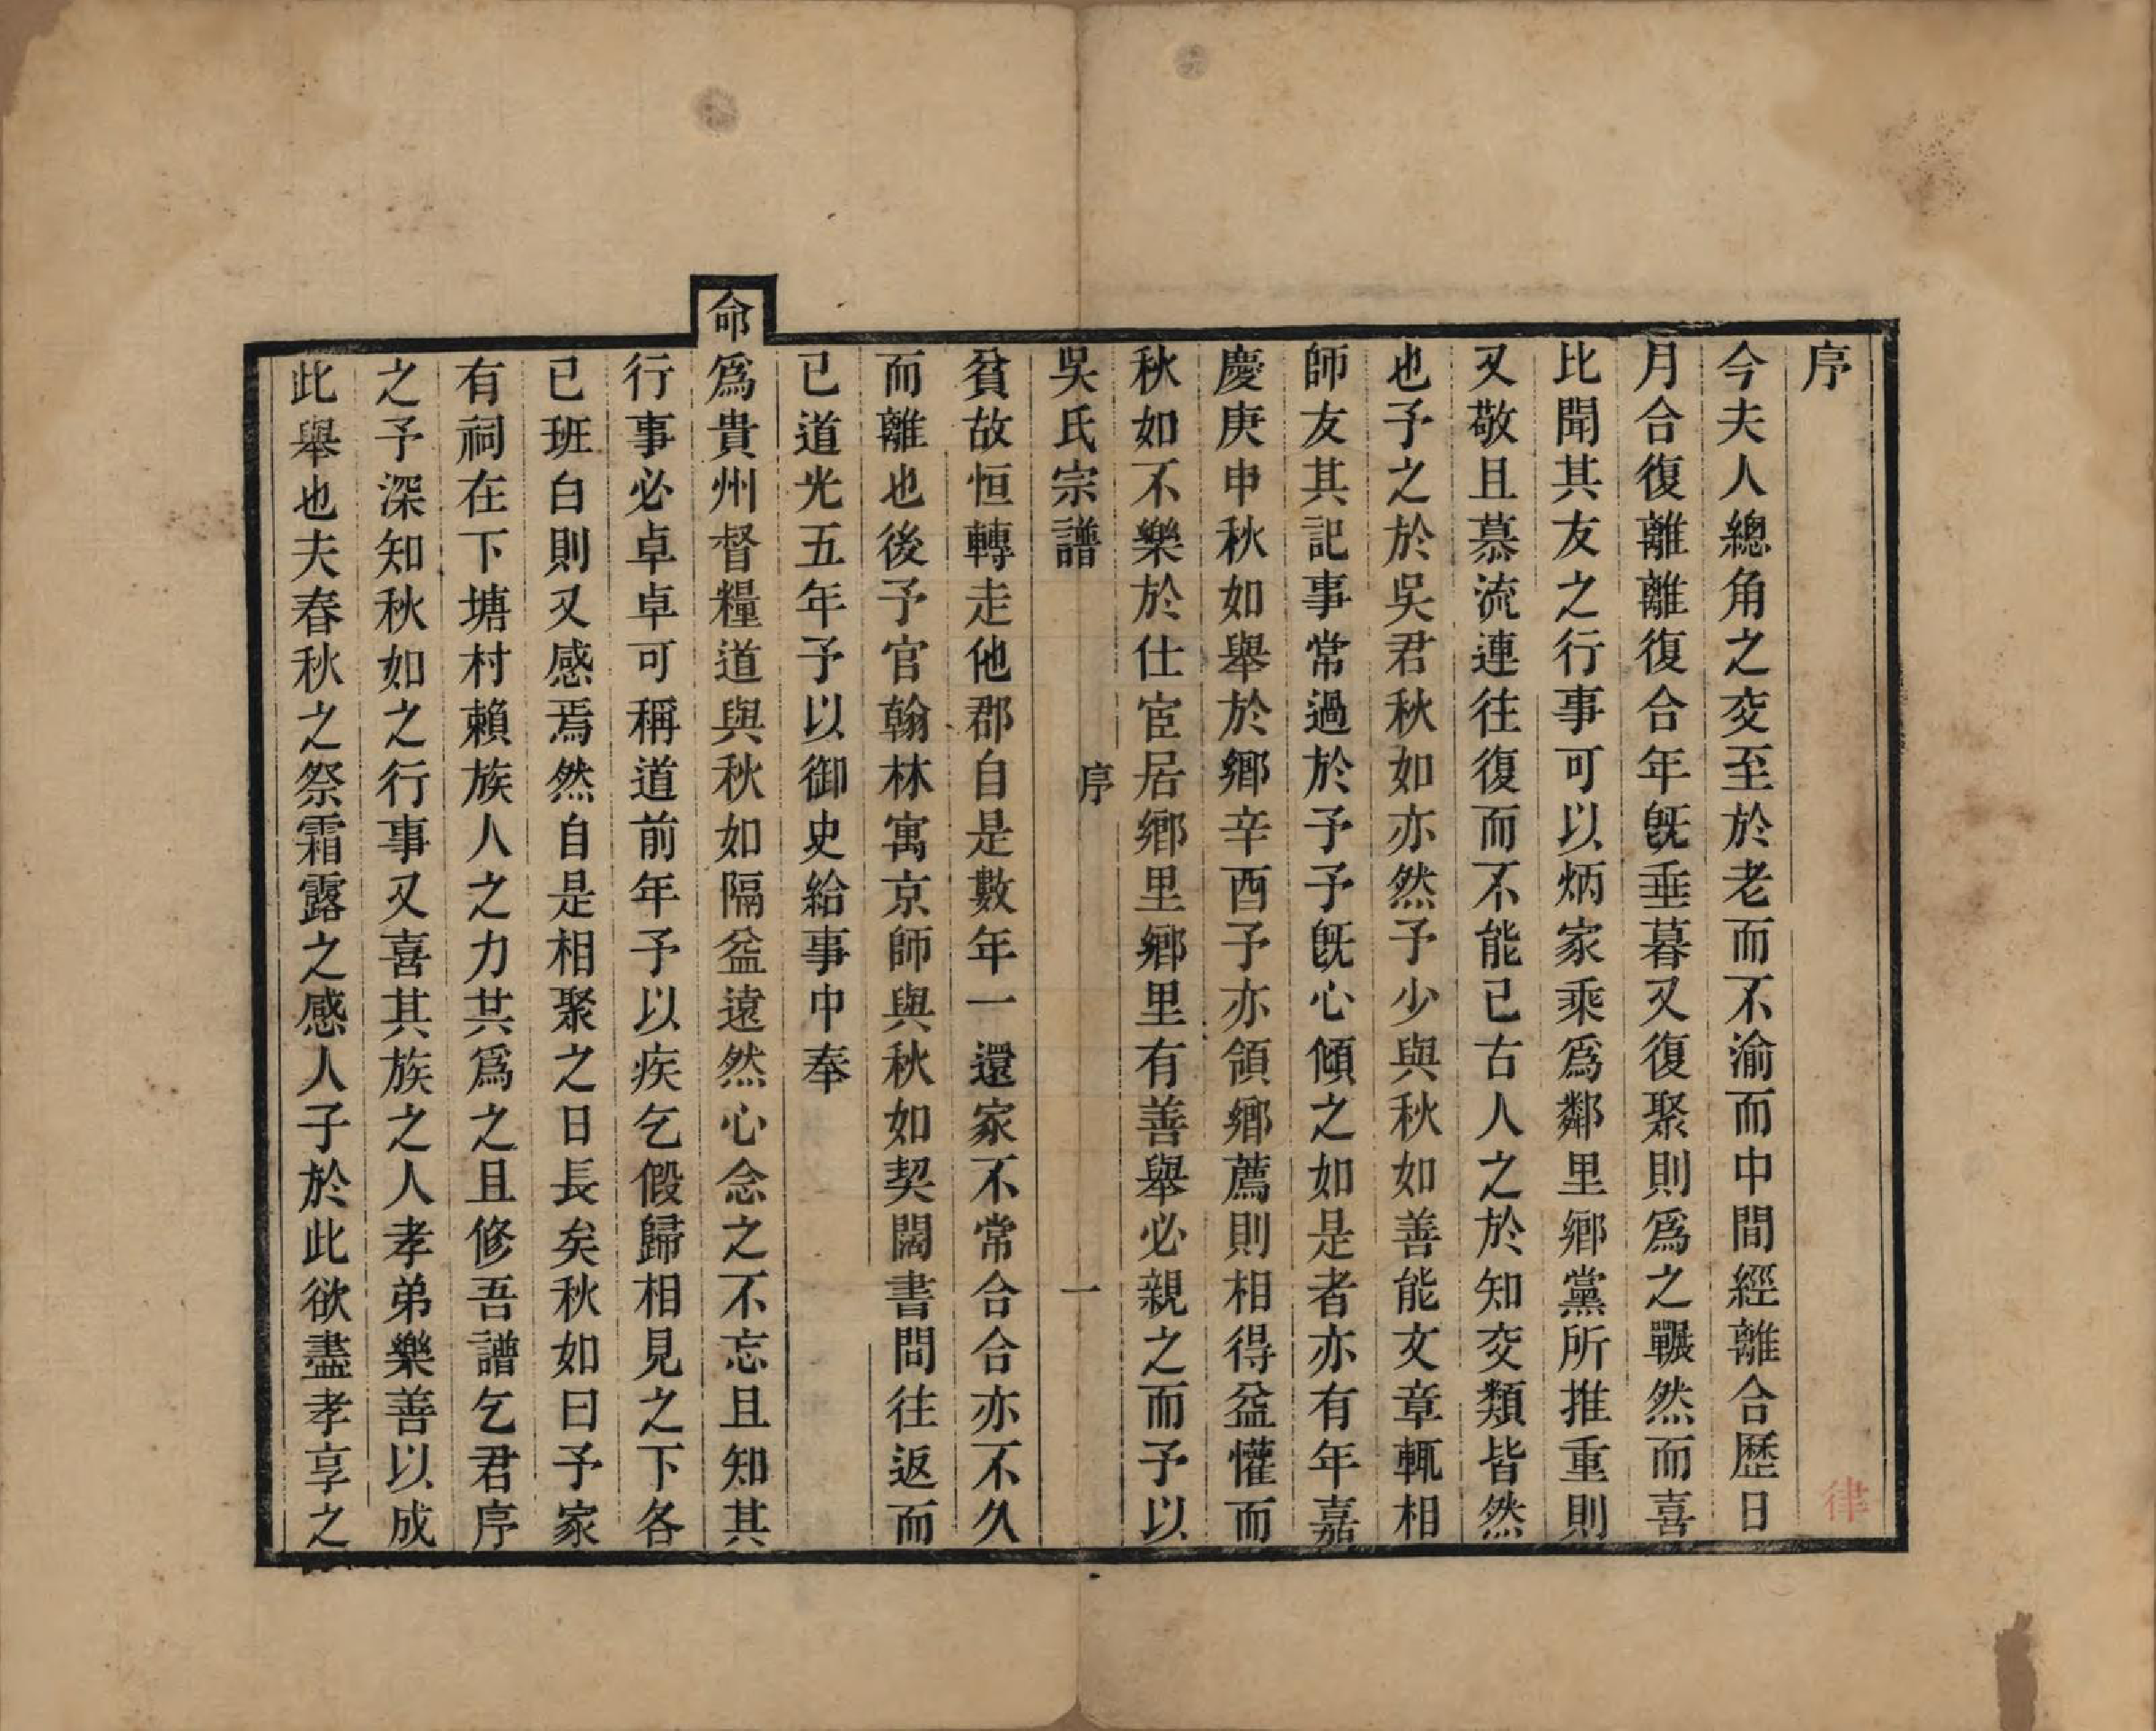 序
今夫人總角之交至於老而不渝而中間經離合歷日
月合復離離復合年旣垂暮又復聚則爲之囅然而喜
比聞其友之行事可以炳家乘爲鄰里鄉黨所推重則
又敬且慕流連往復而不能已古人之於知交類皆然
也予之於吳君秋如亦然予少與秋如善能文章輒相
師友其記事常過於予予旣心傾之如是者亦有年嘉
慶庚申秋如舉於鄉辛酉予亦領鄉薦則相得益懽而
秋如不樂於仕宦居鄉里鄉里有善舉必親之而予以
吳氏宗譜 序 一
貧故恒轉走他郡自是數年一還家不常合合亦不久
而離也後予官翰林寓京師與秋如契闊書問往返而
已道光五年予以御史給事中奉
命爲貴州督糧道與秋如隔益遠然心念之不忘且知其
行事必卓卓可稱道前年予以疾乞假歸相見之下各
已班白則又感焉然自是相聚之日長矣秋如曰予家
有祠在下塘村賴族人之力共爲之且修吾譜乞君序
之予深知秋如之行事又喜其族之人孝弟樂善以成
此舉也夫春秋之祭霜露之感人子於此欲盡孝享之
律